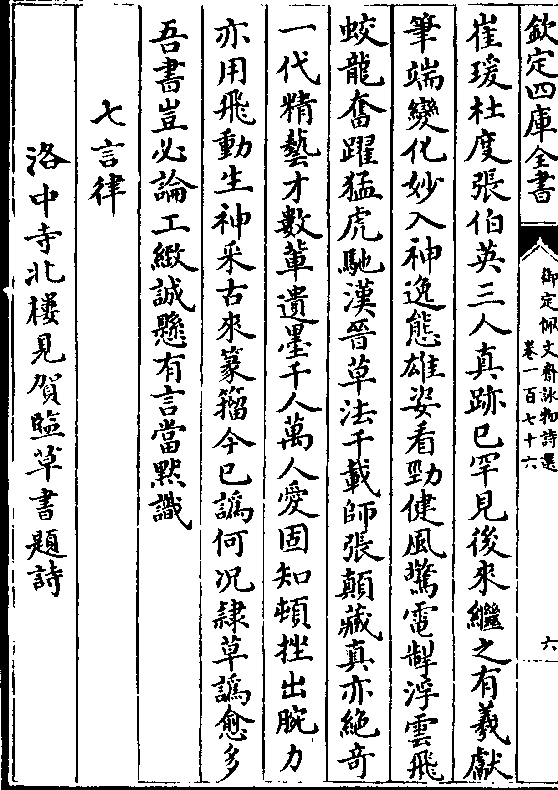 欽定四庫全書
御定佩文齋詠物詩選
卷一百七十六
六
崔瑗杜度張伯英三人真跡已罕見後來繼之有羲獻
筆端變化妙入神逸態雄姿看勁健風驚電掣浮雲飛
蛟龍奮躍猛虎馳漢晉草法千載師張顛藏真亦絶竒
一代精藝才數軰遺墨千人萬人愛固知頓挫出腕力
亦用飛動生神采古來篆籀今已譌何况隷草譌愈多
吾書豈必論工緻誠懸有言當黙識
七言律
洛中寺北樓見賀監草書題詩